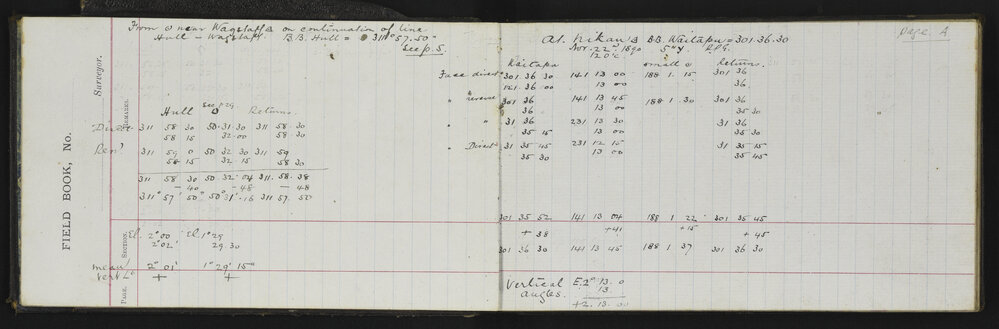 From ⊙ near Wagstaffs on continuation of line
Hull - Wagstaff. B.B. Hull = 311°57.50"
See p. 5.
FIELD BOOK, No.
Surveyor.
REMARKS.
SECTION.
PAGE.
Hull See p 29 Returns.
Direct 311 58 30 50.31.30 311 58.30
58 15 32.00 58 30
Rev? 311 59 0 50 32 30 311 59
58 15 32 15 58 30
311 58 30 50 32 04 311. 58. 38
-40 -48 -48
311° 57' 50" 50° 31'.16 311 57. 50
El. 2°00' El. 1°29
2°02' 29.30
mean 2° 01' 1° 29' 15"
Vert L +
+
Page 4
At Nikau B B.B. Waitapu = 301.36.30
Nov. 22nd 1890 5"y. R.P.G.
120°c
Waitapu small ⊙ Returns.
Face direct 301 36 30 141 13 00 188 1. 15 301 36
121. 36 00 13 00 36.
" reverse 301 36 141 13 45 188 1. 30 301 36
36. 13 00 35.30
" " 31 36 231 13 30 31 36
35 15 13 00 35 30
" Direct 31 35 45 231 12 15 31 35 15
35 30 13 00 35 45
301 35 52 141 13 04 188 1 22 301 35 45
+ 38 +41 +15 + 45
301 36 30 141 13 45 188 1 37 301 36 30
Vertical E. 2° 13. 0
angles. 13
+2. 13. 00